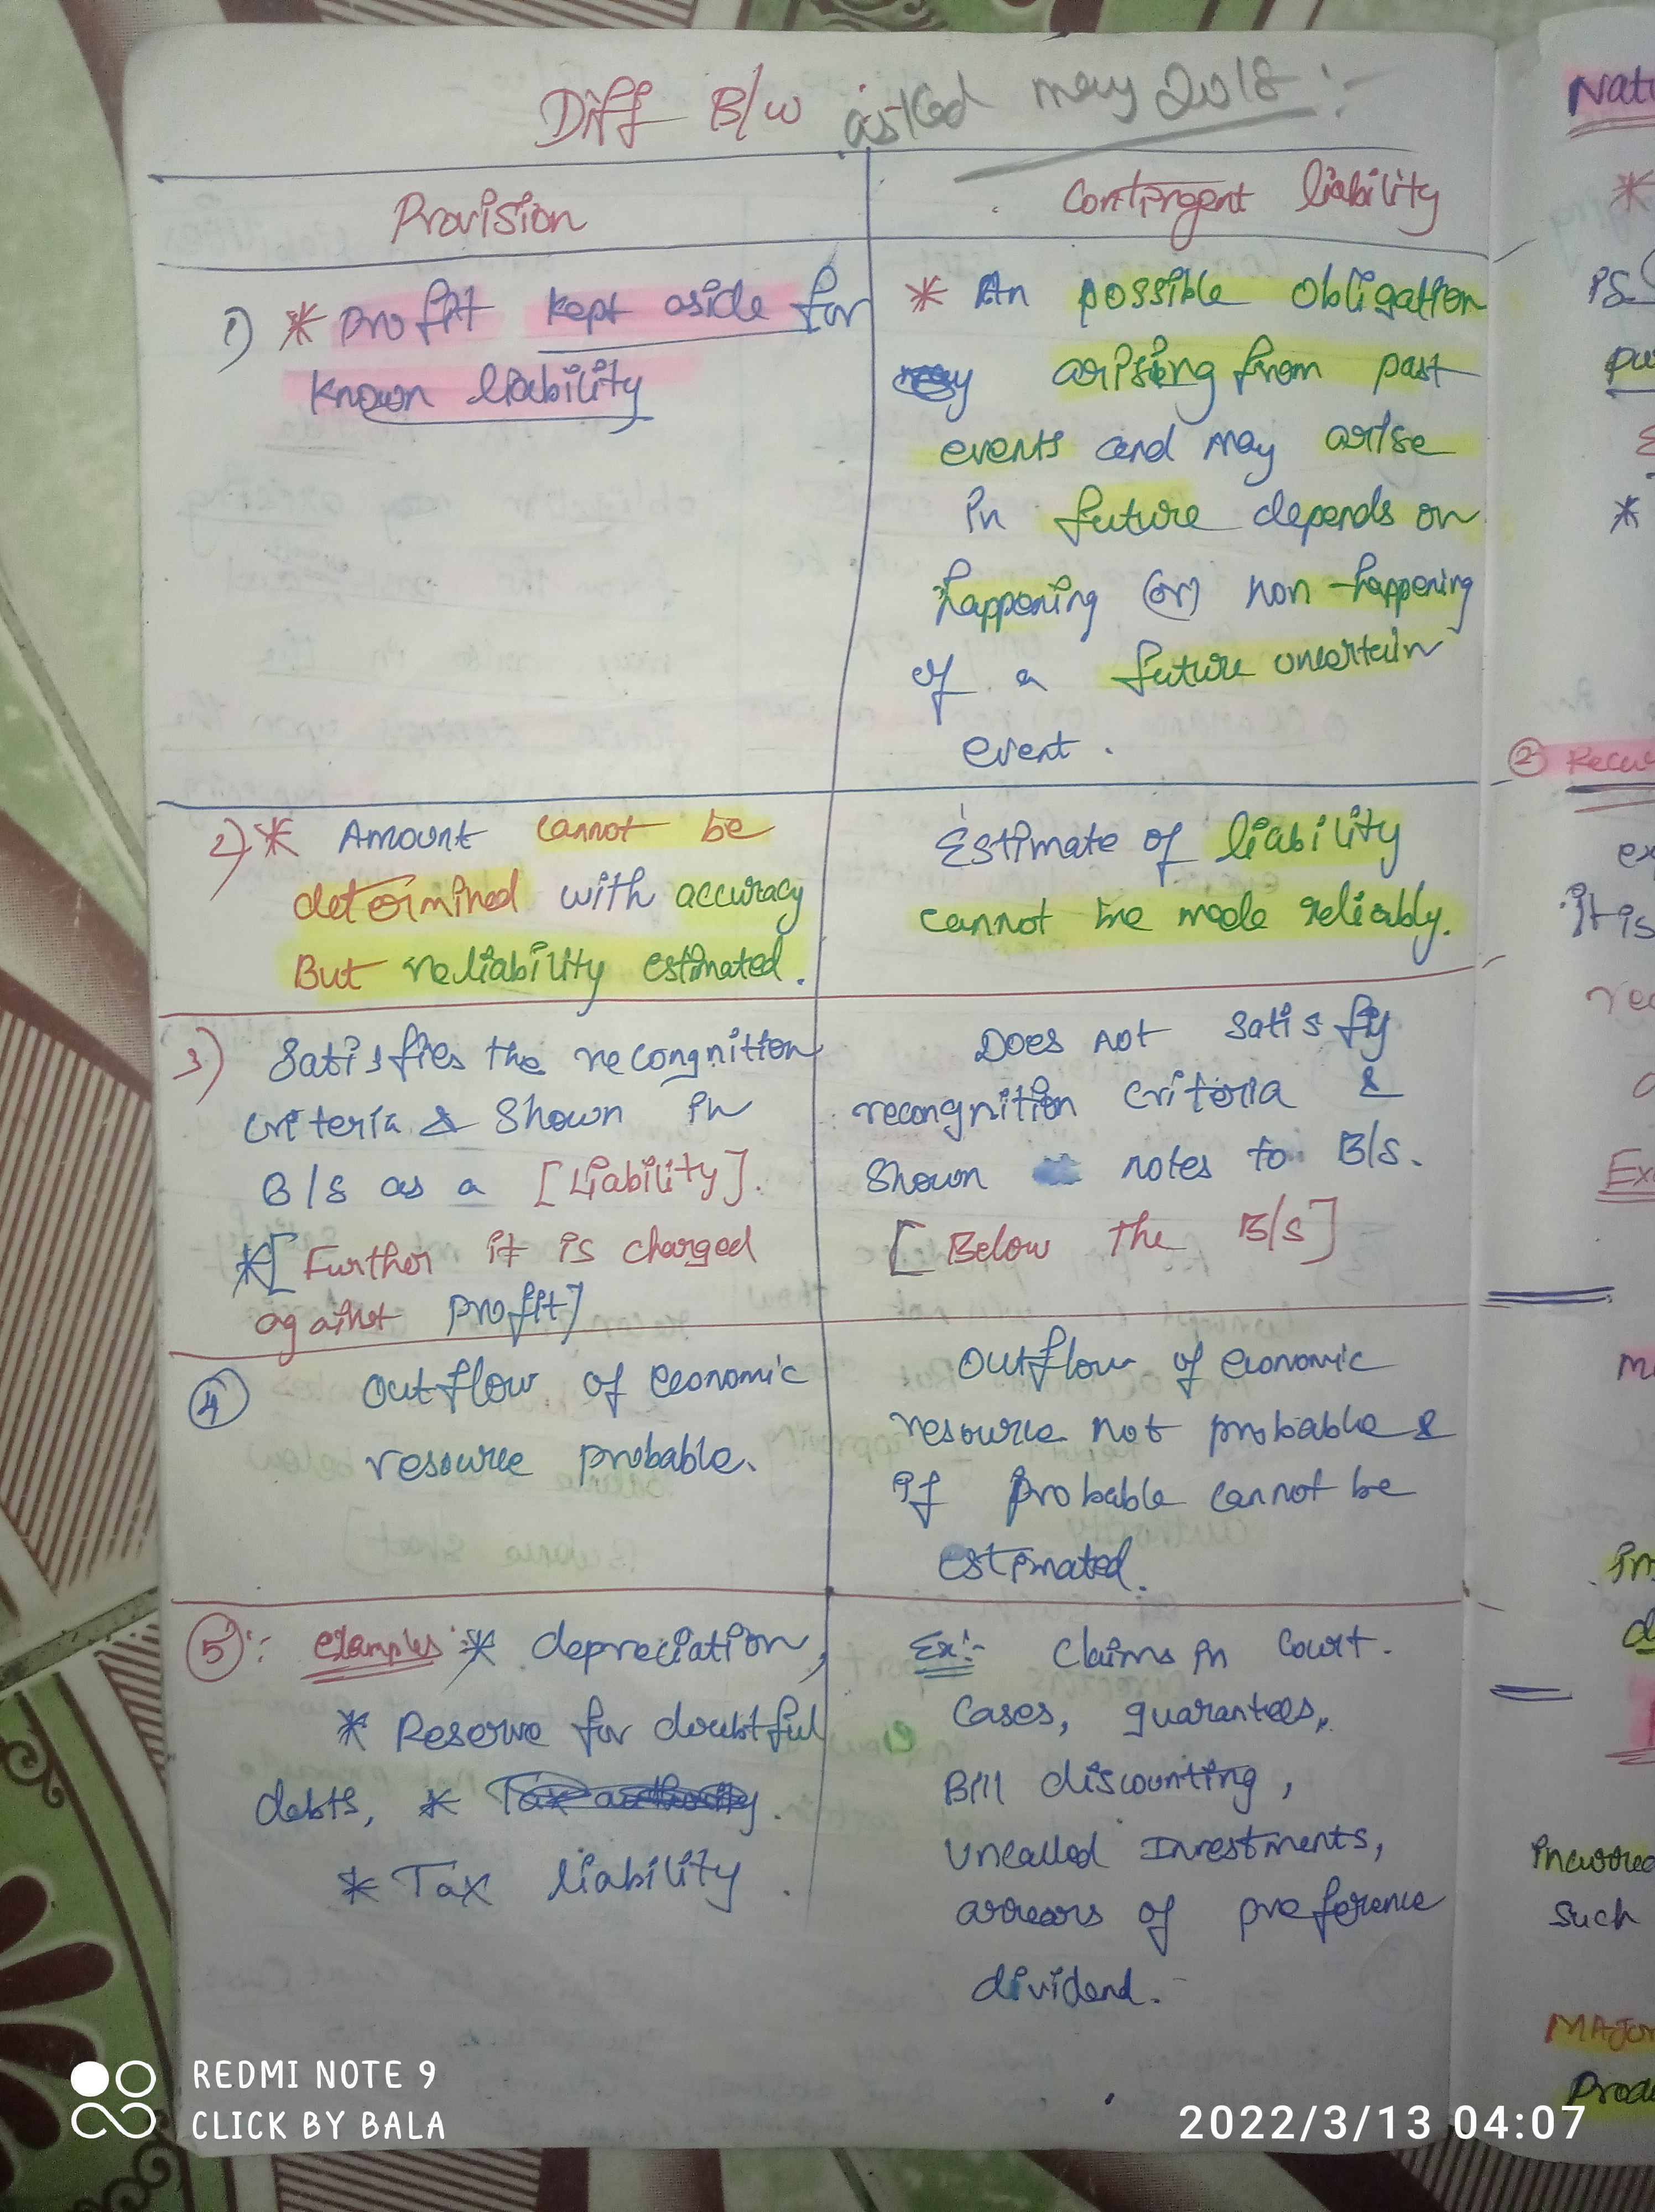 Diff B/w asked may 2018 :-
Provision
Contingent liability
1) * profit kept aside for
known liability
* An possible obligation
arising from past
events and may arise
in future depends on
happening (or) non-happening
of a future uncertain
event.
2) * Amount cannot be
determined with accuracy
But reliability estimated.
Estimate of liability
cannot be made reliably.
3) Satisfies the recongnition
criteria & Shown in
B/S as a [Liability].
*[Further it is charged
against profit]
Does not satisfy
recongnition criteria &
Shown notes to B/S.
[Below the B/S]
4) Outflow of economic
resource probable.
Outflow of economic
resource not probable &
if probable cannot be
estimated.
5): examples :* depreciation,
* Reserve for doubtful
debts, *
* Tax liability.
Ex:- Claims in Court.
Cases, guarantees,
Bill discounting,
uncalled Investments,
arrears of preference
dividend.
Natu
*
is
pu
*
② Recu
ex
it is
rec
Ex
in
d
incurred
such
MAjor
Prod
REDMI NOTE 9
CLICK BY BALA
2022/3/13 04:07